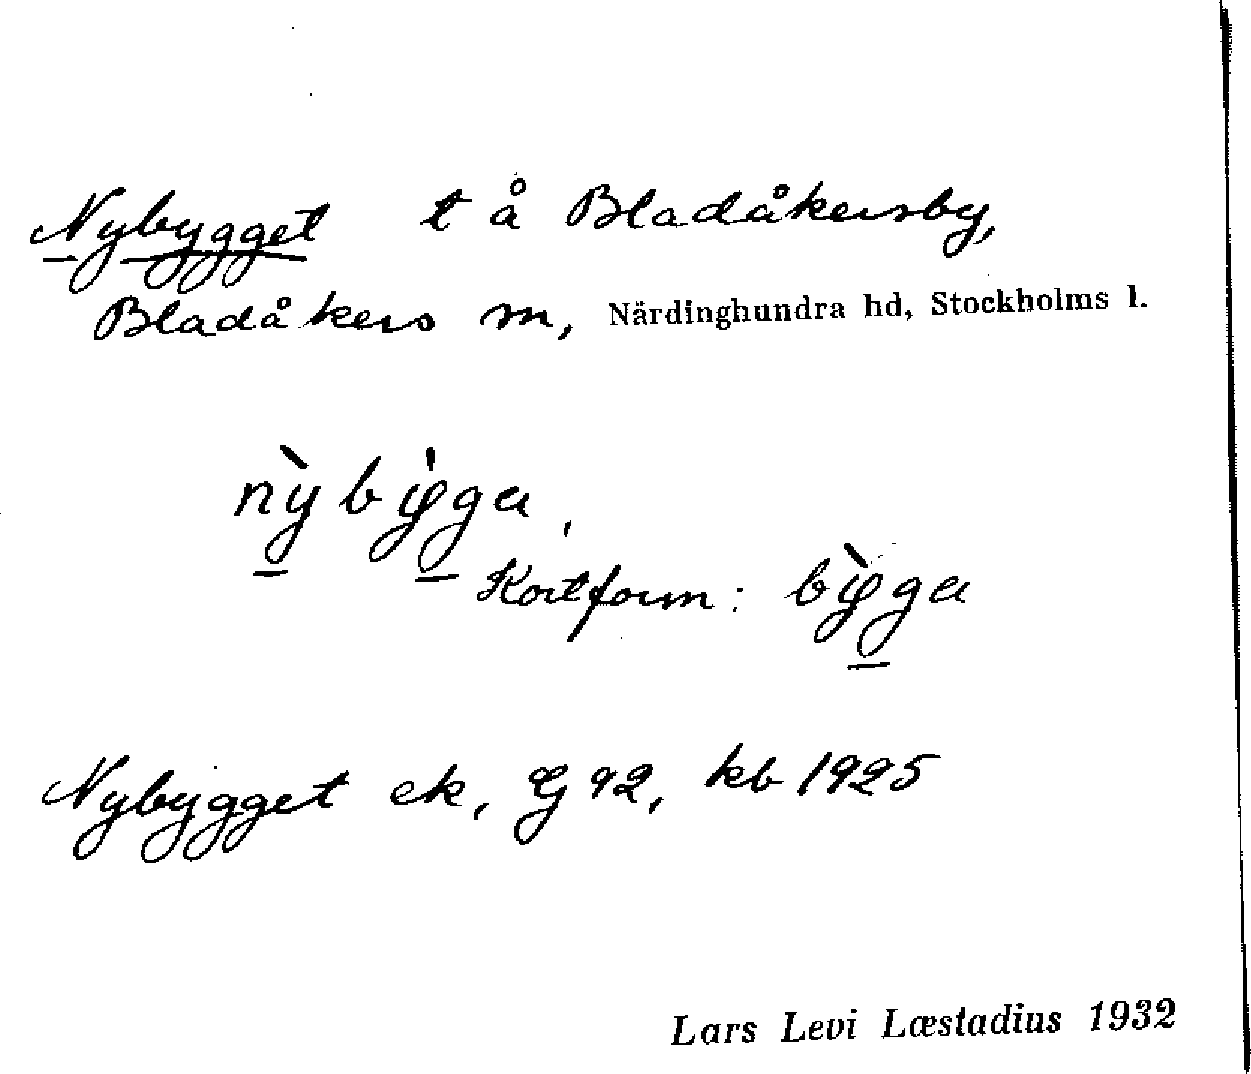 Nybygget t å Bladåkersby,
Bladåkers sn, Närdinghundra hd, Stockholms l.
nỳbyga,
Kortform: bỳga
Nybygget ek, 92, kb 1925
Lars Levi Læstadius 1932